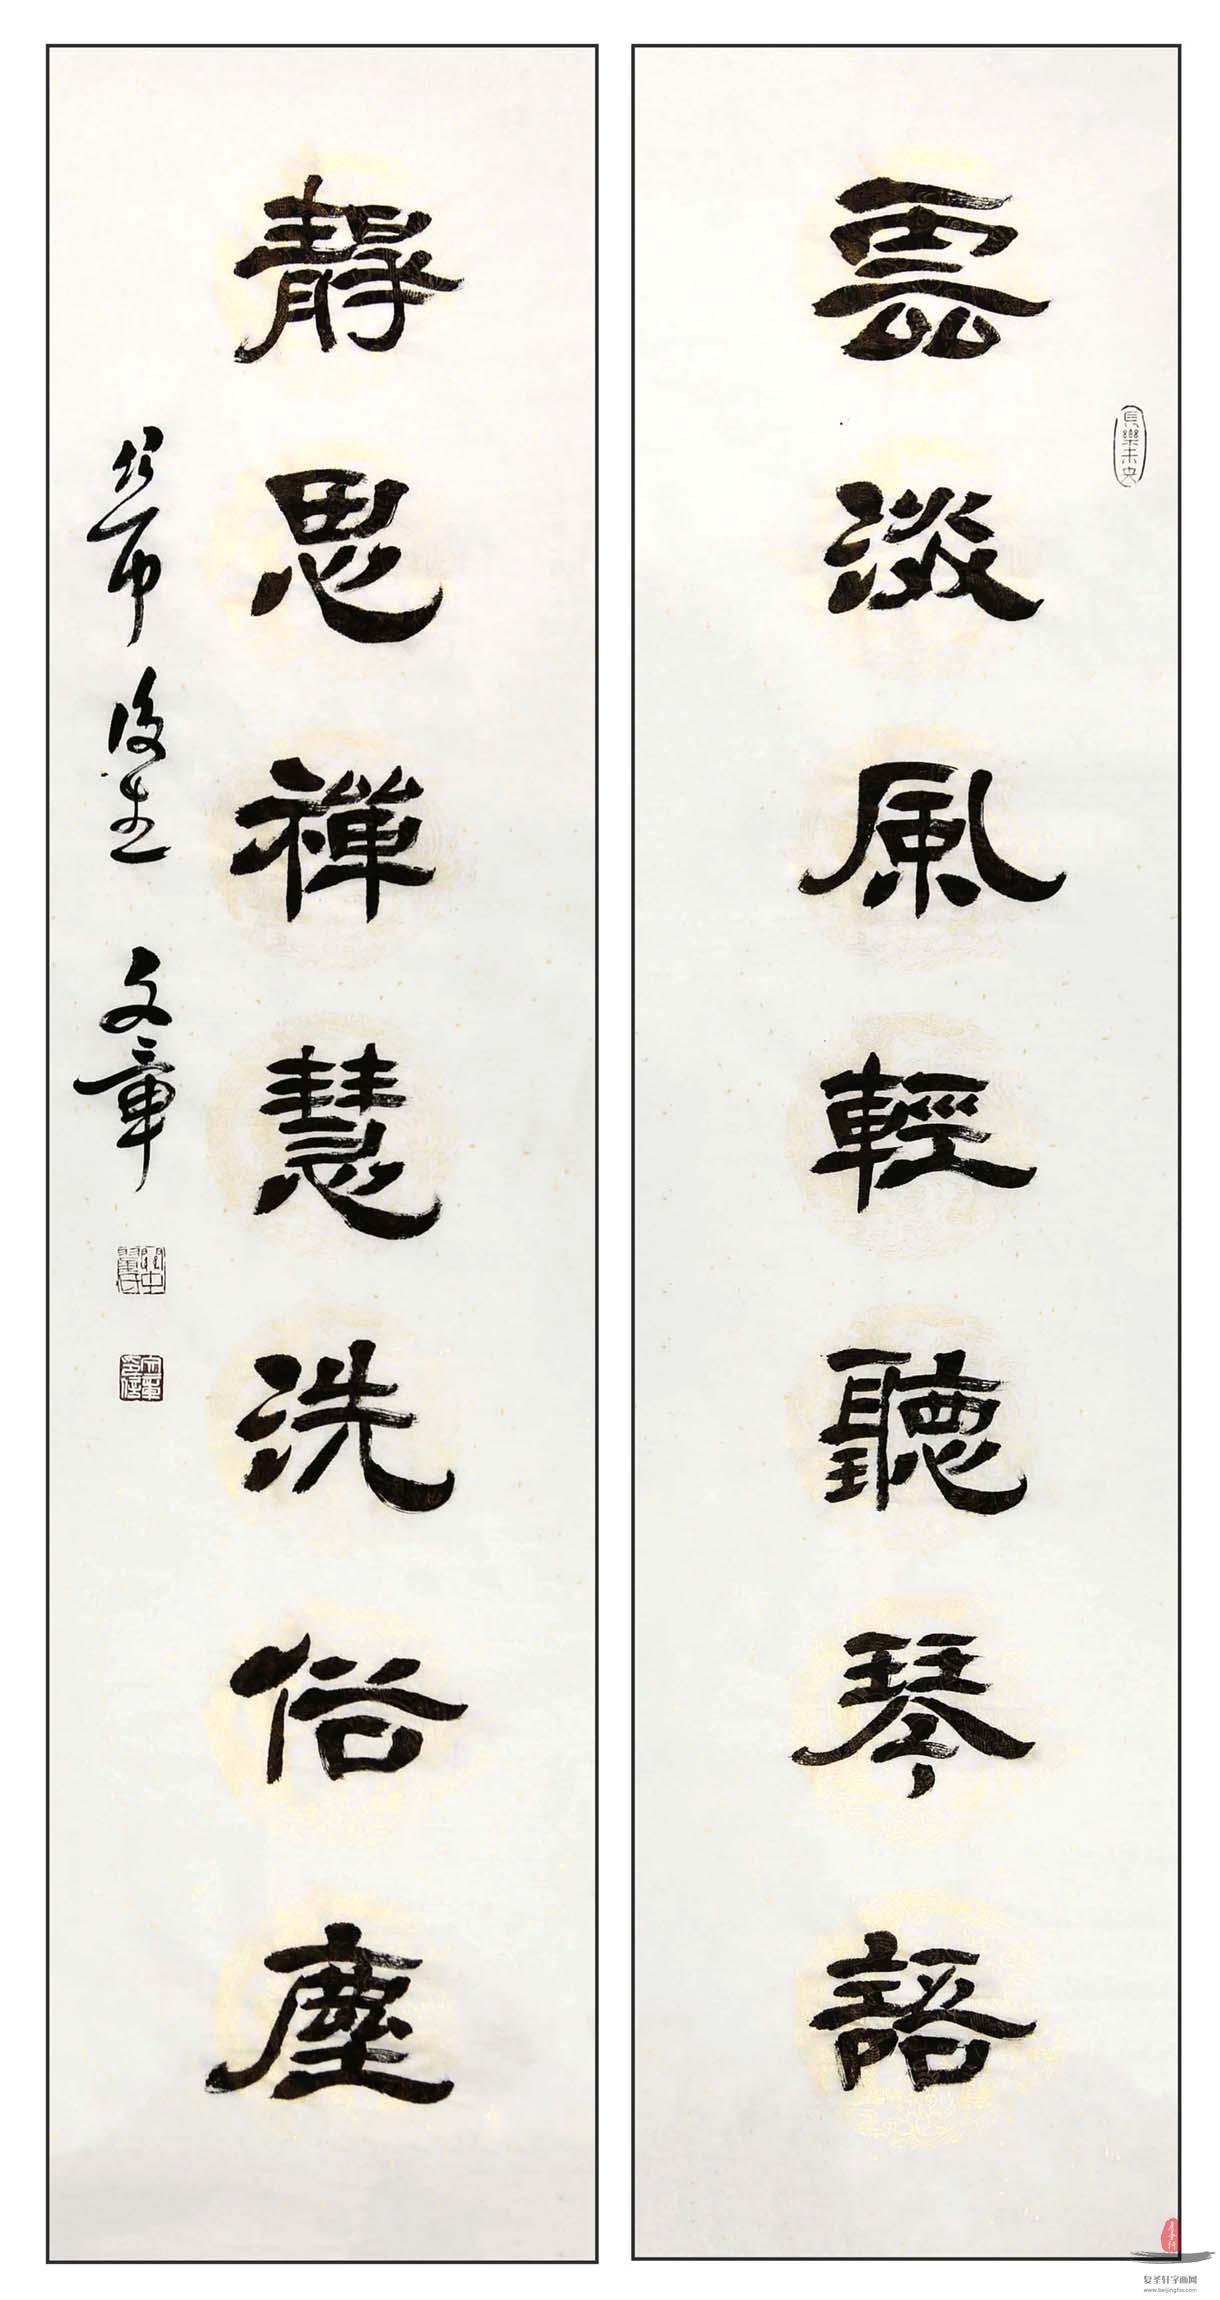 雲淡風輕聽琴語
長樂未央
靜思禪慧洗俗塵
文章
复圣轩字画网
www.beijingfsx.com